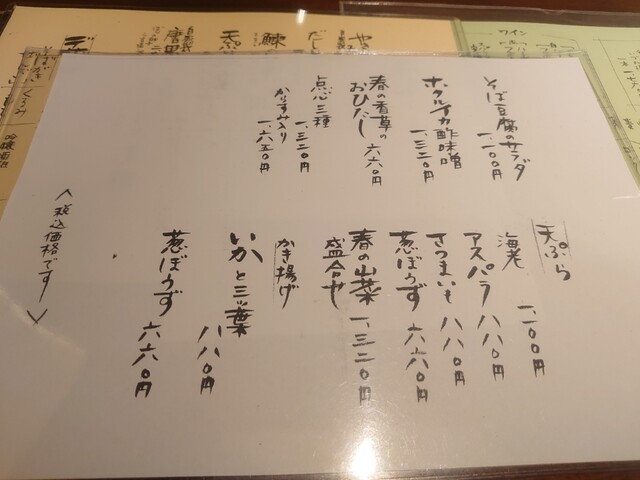 そば豆腐のサラダ
一、一〇〇円
ホタルイカ酢味噌
一、三二〇円
春の香草の
おひたし 六六〇円
点心三種
一、三二〇円
からすみ入り
一、六五〇円
天ぷら
海老 一、一〇〇円
アスパラ 八八〇円
さつまいも 八八〇円
葱ぼうず 六六〇円
春の山菜
盛合せ 一、三二〇円
かき揚げ
いかと三ッ葉
八八〇円
葱ぼうず 六六〇円
〈税込価格です〉
ワイン